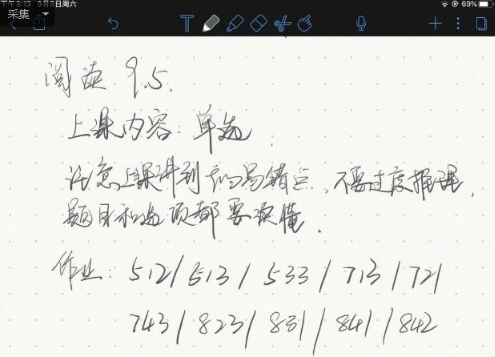 下午9:13 9月5日周六
69%
采集
T
阅读 9.5.
上课内容：单选
注意上课讲到的易错点，不要过度推理，
题目和选项都要读懂.
作业：512/513/533/713/721
743/823/831/841/842